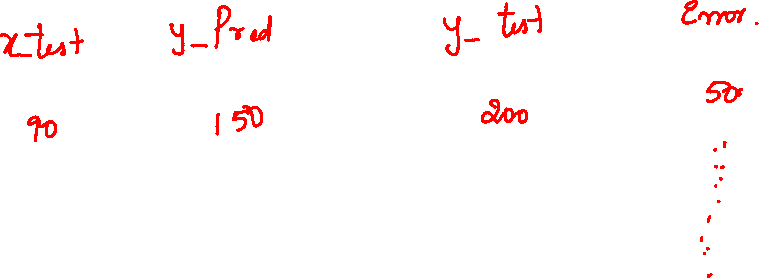 x_test y_Pred y_test Error.
90 150 200 50